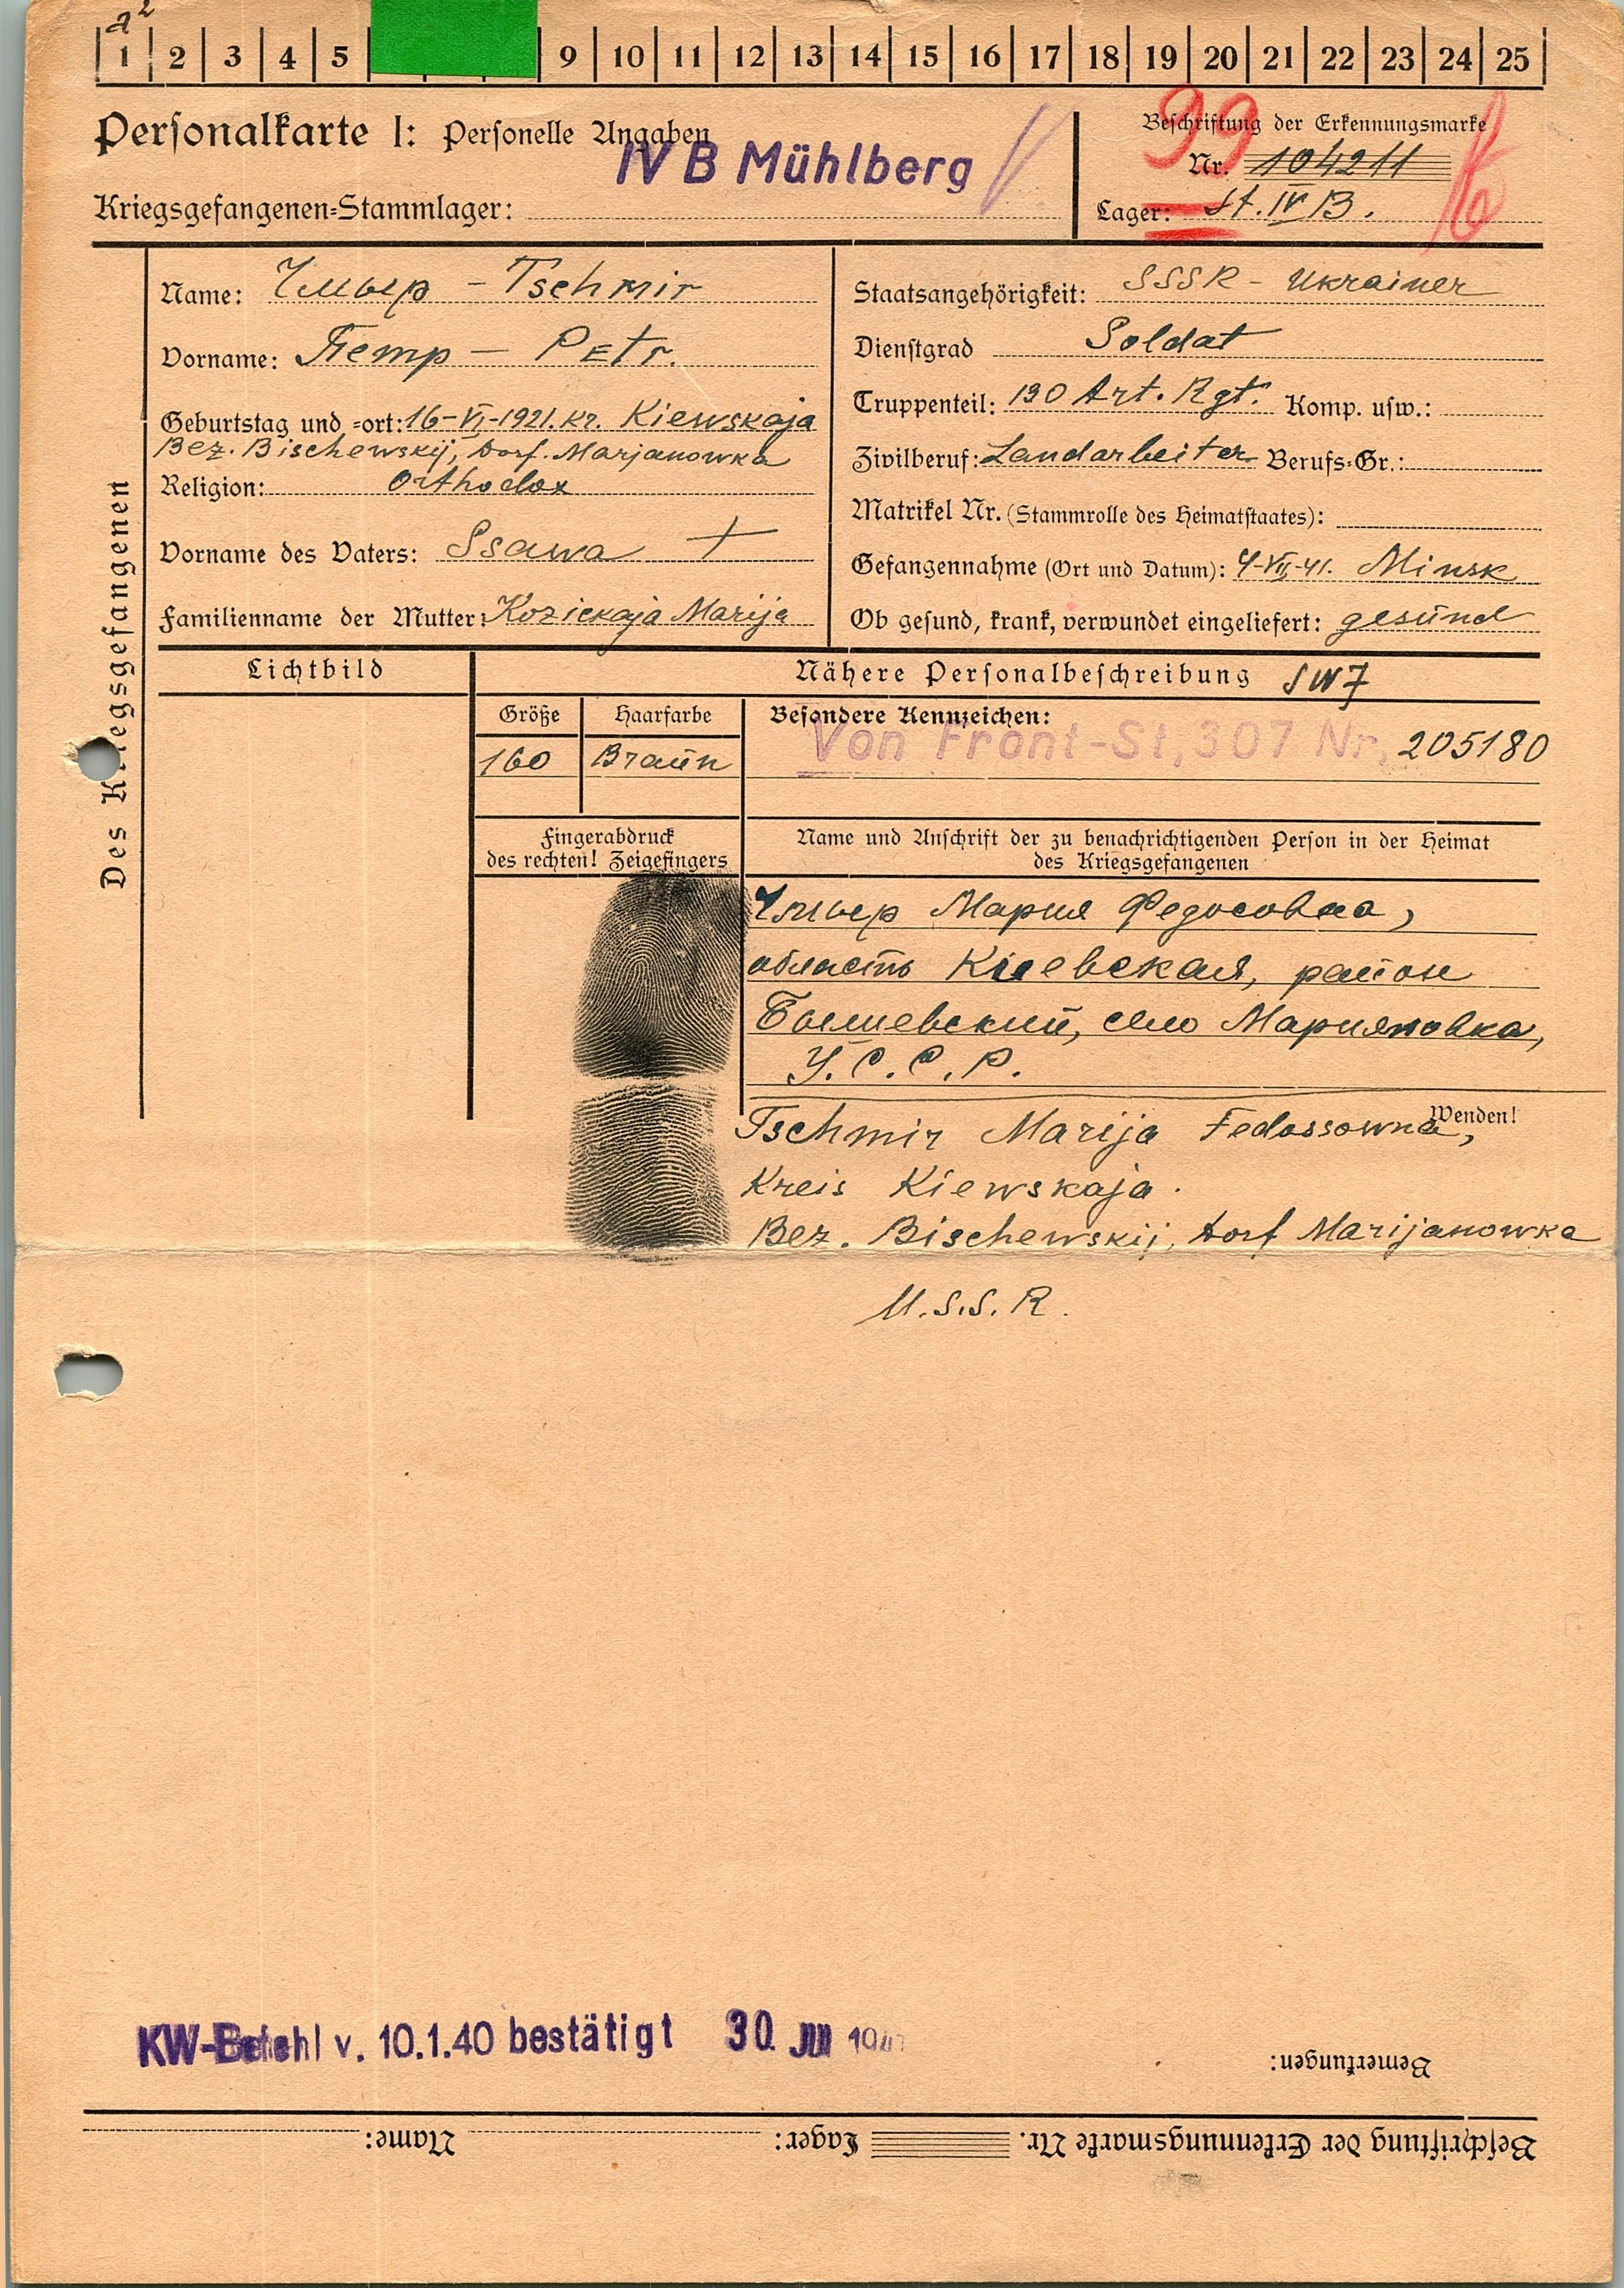 a²
1 2 3 4 5 9 10 11 12 13 14 15 16 17 18 19 20 21 22 23 24 25
Personalkarte I: Personelle Angaben
IV B Mühlberg
Kriegsgefangenen-Stammlager:
Beschriftung der Erkennungsmarke
99
Nr. 104211
Lager: St. IV B.
Des Kriegsgefangenen
Name: Чмыр - Tschmir
Vorname: Петр - Petr.
Geburtstag und -ort: 16-VI-1921. Kr. Kiewskaja
Bez. Bischewskij, Dorf. Marjanowka
Religion: Orthodox
Vorname des Vaters: Ssawa +
Familienname der Mutter: Kozickaja Marija
Staatsangehörigkeit: SSSR - Ukrainer
Dienstgrad Soldat
Truppenteil: 190 Art. Rgt. Komp. usw.:
Zivilberuf: Landarbeiter Berufs-Gr.:
Matrikel Nr. (Stammrolle des Heimatstaates):
Gefangennahme (Ort und Datum): 4-VII-41. Minsk
Ob gesund, krank, verwundet eingeliefert: gesund
Lichtbild
Nähere Personalbeschreibung SW7
Größe Haarfarbe
160 Braun
Besondere Kennzeichen:
Von Front-St, 307 Nr. 205180
Fingerabdruck
des rechten! Zeigefingers
Name und Anschrift der zu benachrichtigenden Person in der Heimat
des Kriegsgefangenen
Чмыр Мария Федосовна,
область Киевская, район
Бышевский, село Марияновка,
У.С.С.Р.
Wenden!
Tschmir Marija Fedossowna,
Kreis Kiewskaja.
Bez. Bischewskij, Dorf Marijanowka
U.S.S.R.
KW-Befehl v. 10.1.40 bestätigt 30. JULI
Bemerkungen:
Beschriftung der Erkennungsmarke Nr. Lager: Name: